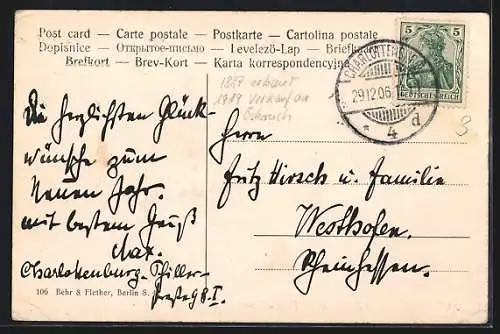 Post card — Carte postale — Postkarte — Cartolina postale
Dopisnice — Открытое письмо — Levelező-Lap — Briefkaart
Brefkort — Brev-Kort — Karta korrespondencyjna
CHARLOTTENBURG
29.12.06.
* 4 d
5 5
DEUTSCHES REICH
1857 erbaut
1919 Verkauf an
Die herzlichsten Glück-
wünsche zum
Neuen Jahr.
mit bestem Gruß
Max.
Charlottenburg. Schiller-
straße 98 I.
Herrn
Fritz Hirsch u. Familie
Westhofen.
Rheinhessen.
3
106 Behr & Flether, Berlin S.